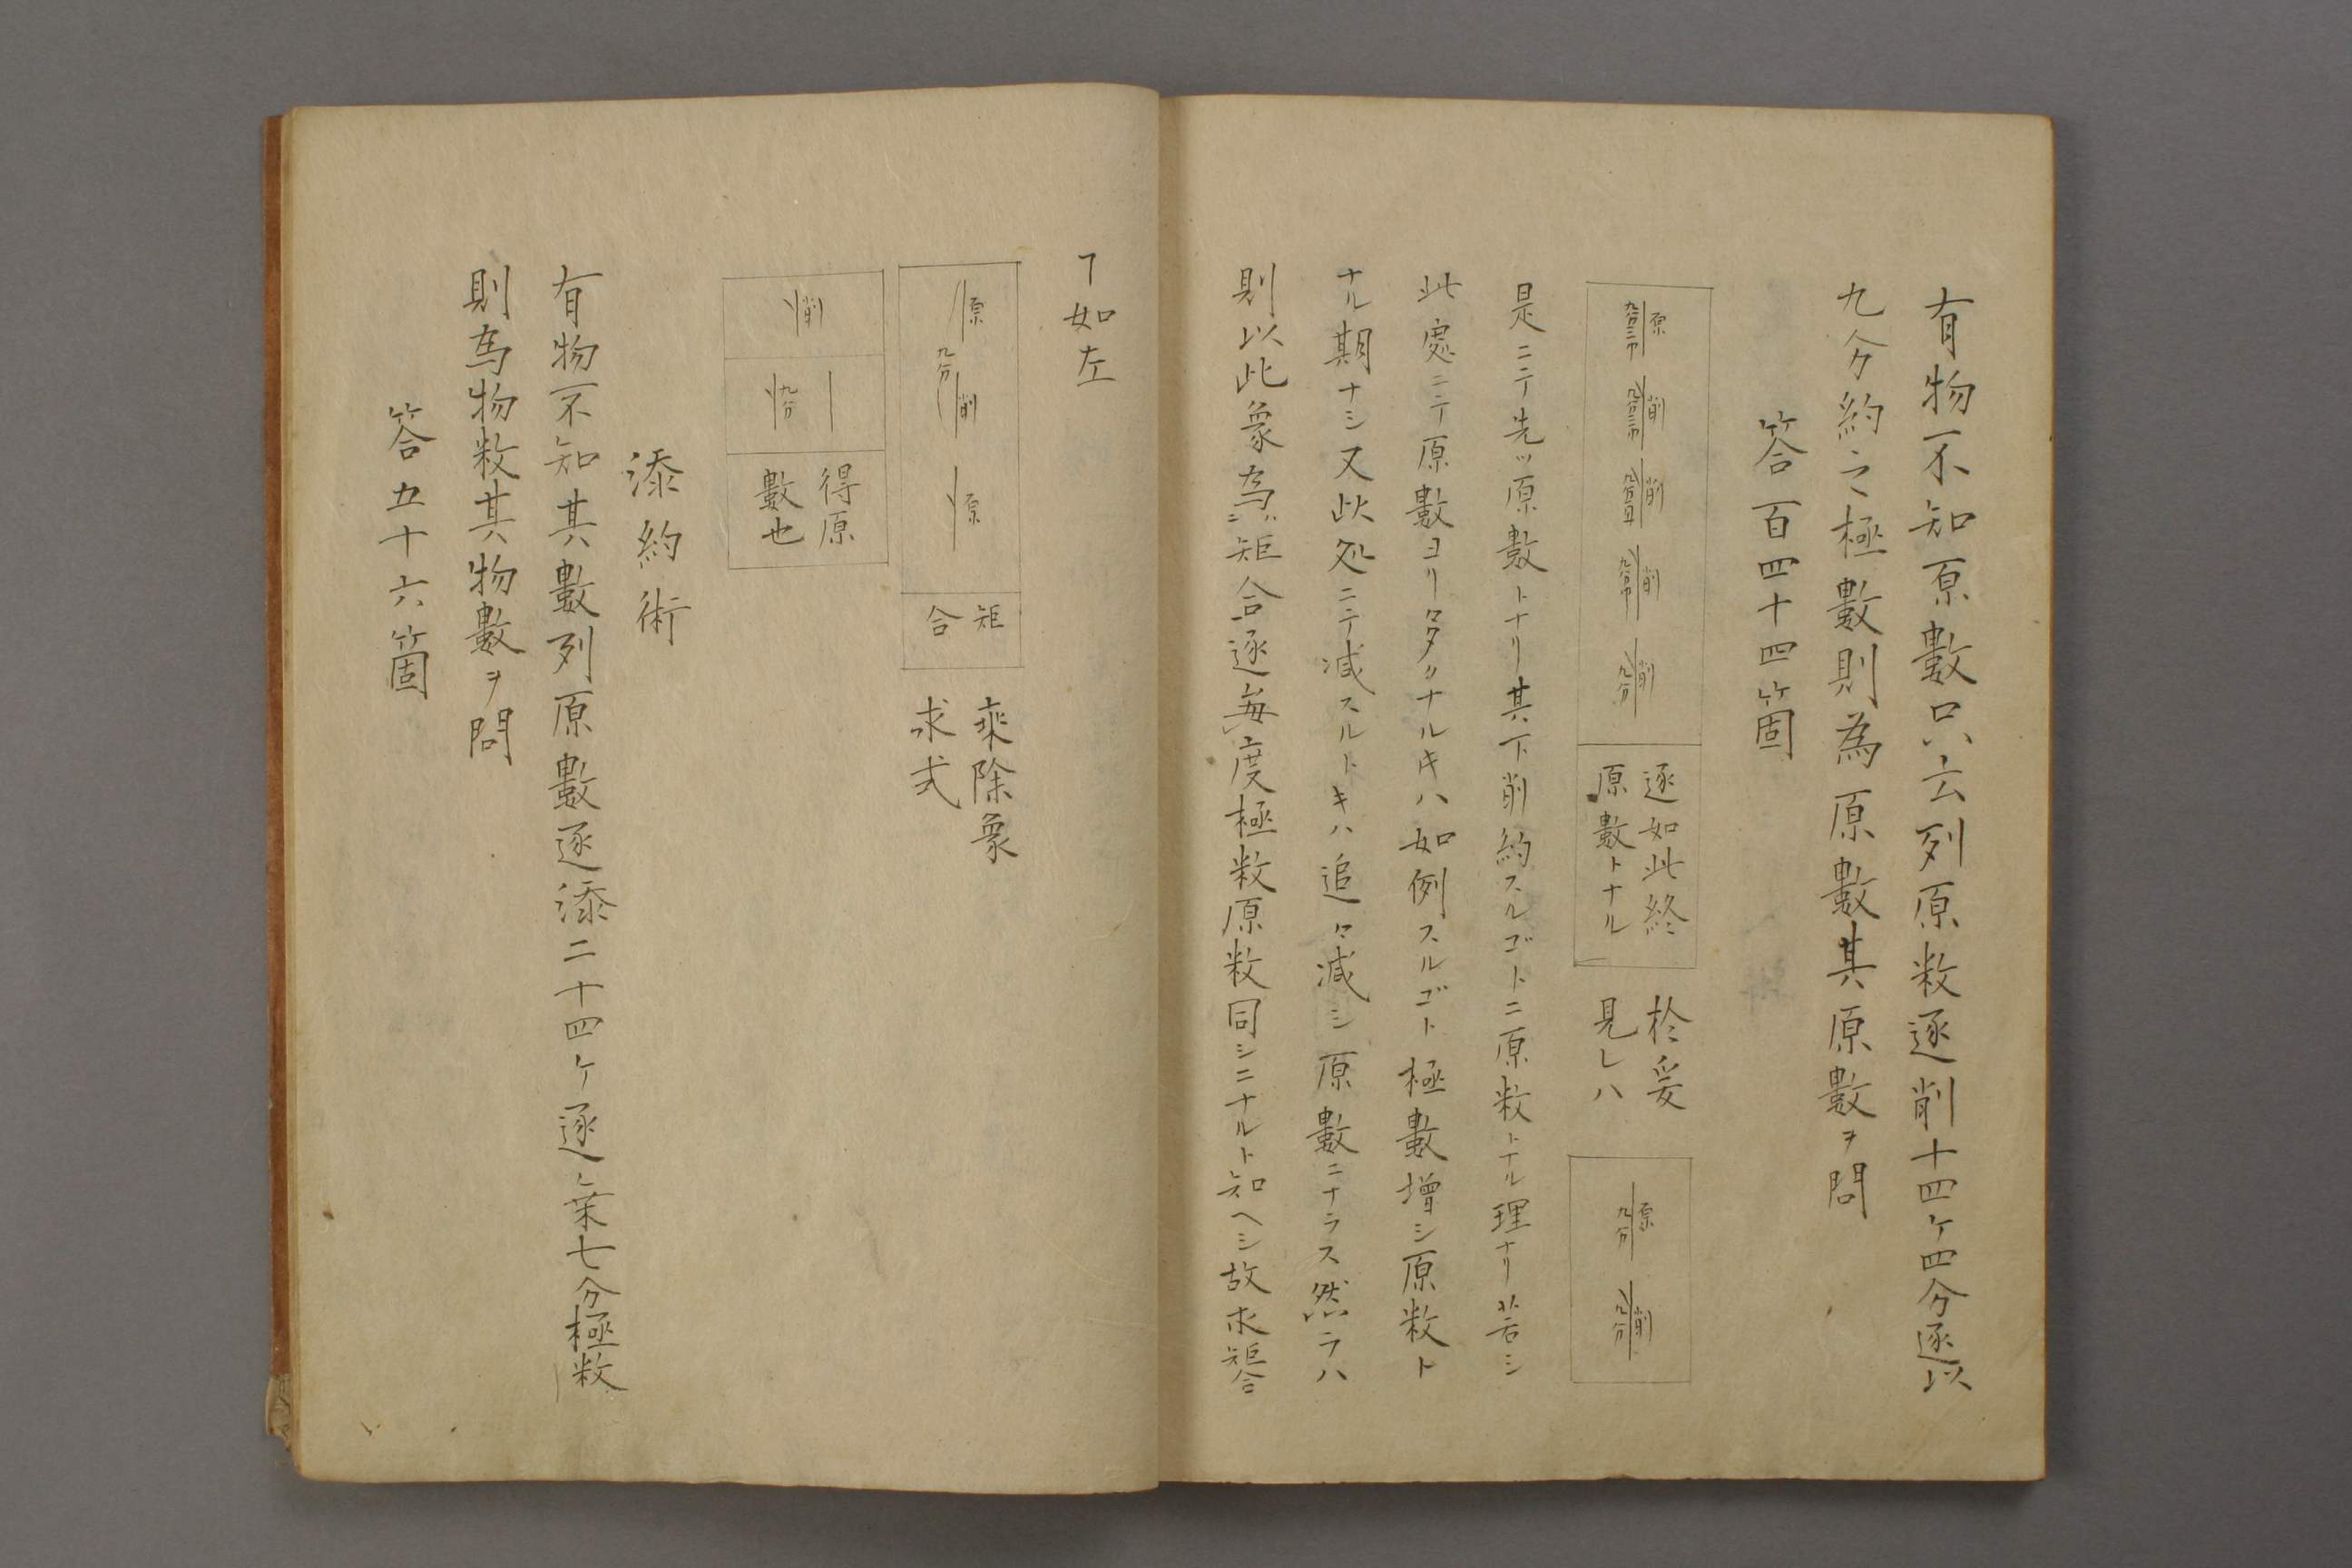 有物不知原數只云列原数逐削十四ケ四分逐以
九分約之極數則為原數其原數ヲ問
答百四十四箇
原 削 削 削 削
逐如此終
原數トナル
於爰
見レハ
原 九分 削 九分
是ニテ先ツ原數トナリ其下削約スルゴトニ原数トナル理ナリ若シ
此處ニテ原數ヨリ タクナルキハ如例スルゴト極數增シ原数ト
ナル期ナシ又此処ニテ減スルトキハ追々減シ原數ニナラス然ラハ
則以此象為矩合逐毎度極数原数同シニナルト知ヘシ故求矩合
ヿ如左
原 九分 削 原
矩
合
乘除象
求式
削
九分
得原
數也
添約術
有物不知其數列原數逐添二十四ケ逐乗七分極数
則為物数其物數ヲ問
答五十六箇